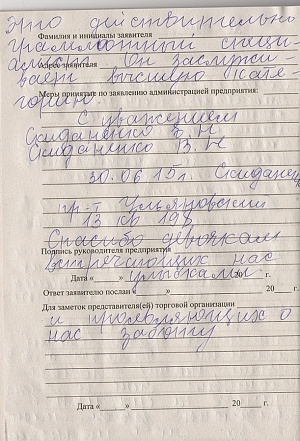 Это действительно
Фамилия и инициалы заявителя
грамматный специ-
алист. Он заслужи-
Адрес заявителя
вает высшую кате-
Меры принятые по заявлению администрацией предприятия:
горию.
С уважением
Скиданенко В. Н
Скиданенко В. Н
30.06 15г. Скиданен
пр-т Ульяновский
13 кв 198
Спасибо девочкам
Подпись руководителя предприятия
встречающих нас
Дата « » 20 г.
улыбками
Ответ заявителю послан « » 20 г.
Для заметок представителя(ей) торговой организации
и проявляющих о
нас заботу
Дата « » 20 г.